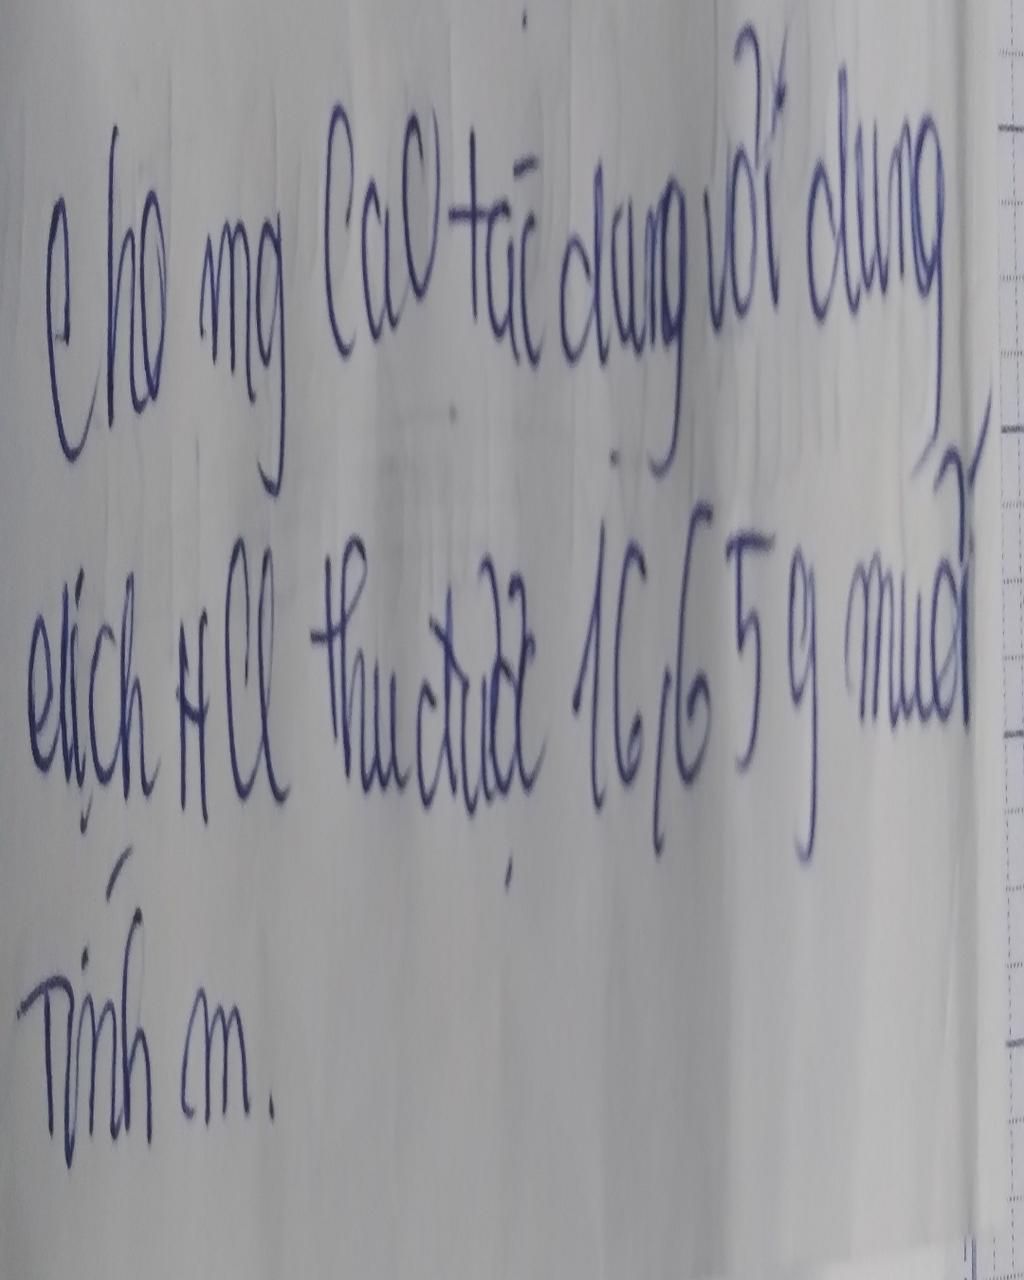 Cho mg CaO tác dụng với dung
dịch HCl thu được 16,65g muối
Tính m.